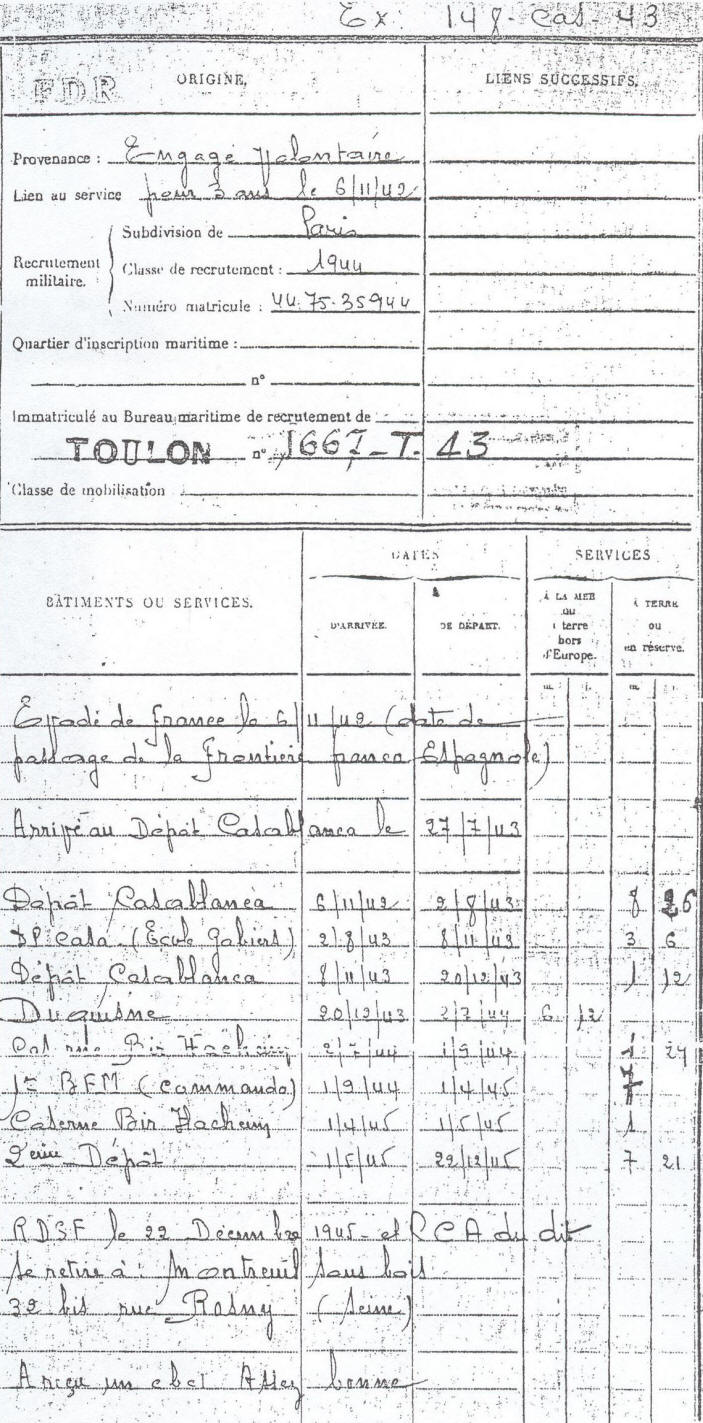 Ex: 148-cas-43
FDR ORIGINE. LIENS SUCCESSIFS.
Provenance : Engagé Volontaire
Lien au service pour 3 ans le 6/11/42
Recrutement militaire.
Subdivision de Paris
Classe de recrutement : 1944
Numéro matricule : 44.75.35944
Quartier d'inscription maritime :
n°
Immatriculé au Bureau maritime de recrutement de
TOULON n° 1667-T. 43
Classe de mobilisation
BÂTIMENTS OU SERVICES. DATES SERVICES
D'ARRIVÉE. DE DÉPART. À LA MER ou à terre hors d'Europe. À TERRE ou en réserve.
m. j. m. j.
Evadé de France le 6/11/42 (date de
passage de la Frontière franco Espagnole)
Arrivé au Dépôt Casablanca le 27/7/43
Dépôt Casablanca 6/11/42 2/8/43 8 26
DP Casa (Ecole Gabiers) 2/8/43 8/11/43 3 6
Dépôt Casablanca 8/11/43 20/12/43 1 12
Duquisne 20/12/43 2/7/44 6 12
Bir Hacheim 2/7/44 1/9/44 1 29
1er BFM (commando) 1/9/44 1/4/45 7
Caserne Bir Hacheim 1/4/45 1/5/45 1
2eme Dépôt 1/5/45 22/12/45 7 21
RDSF le 22 Décembre 1945 - et RCA du dit
se retire à : Montreuil sous bois
32 bis rue Rosny (Seine)
A reçu un Assez bonne